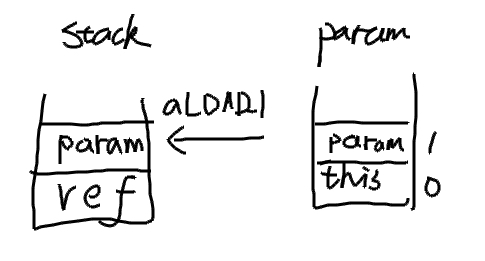 stack
param
aLOAD1
param
ref
param 1
this 0